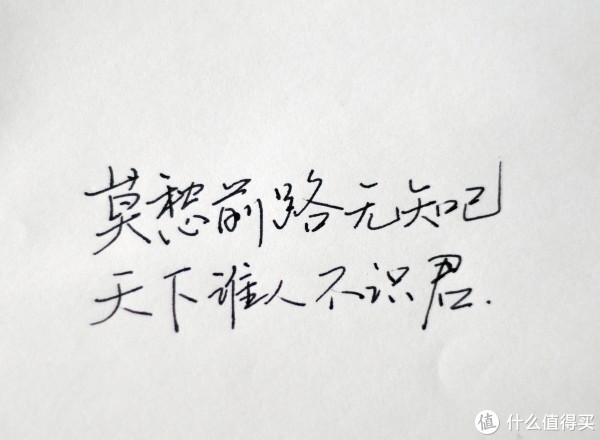 莫愁前路无知己
天下谁人不识君.
值 什么值得买